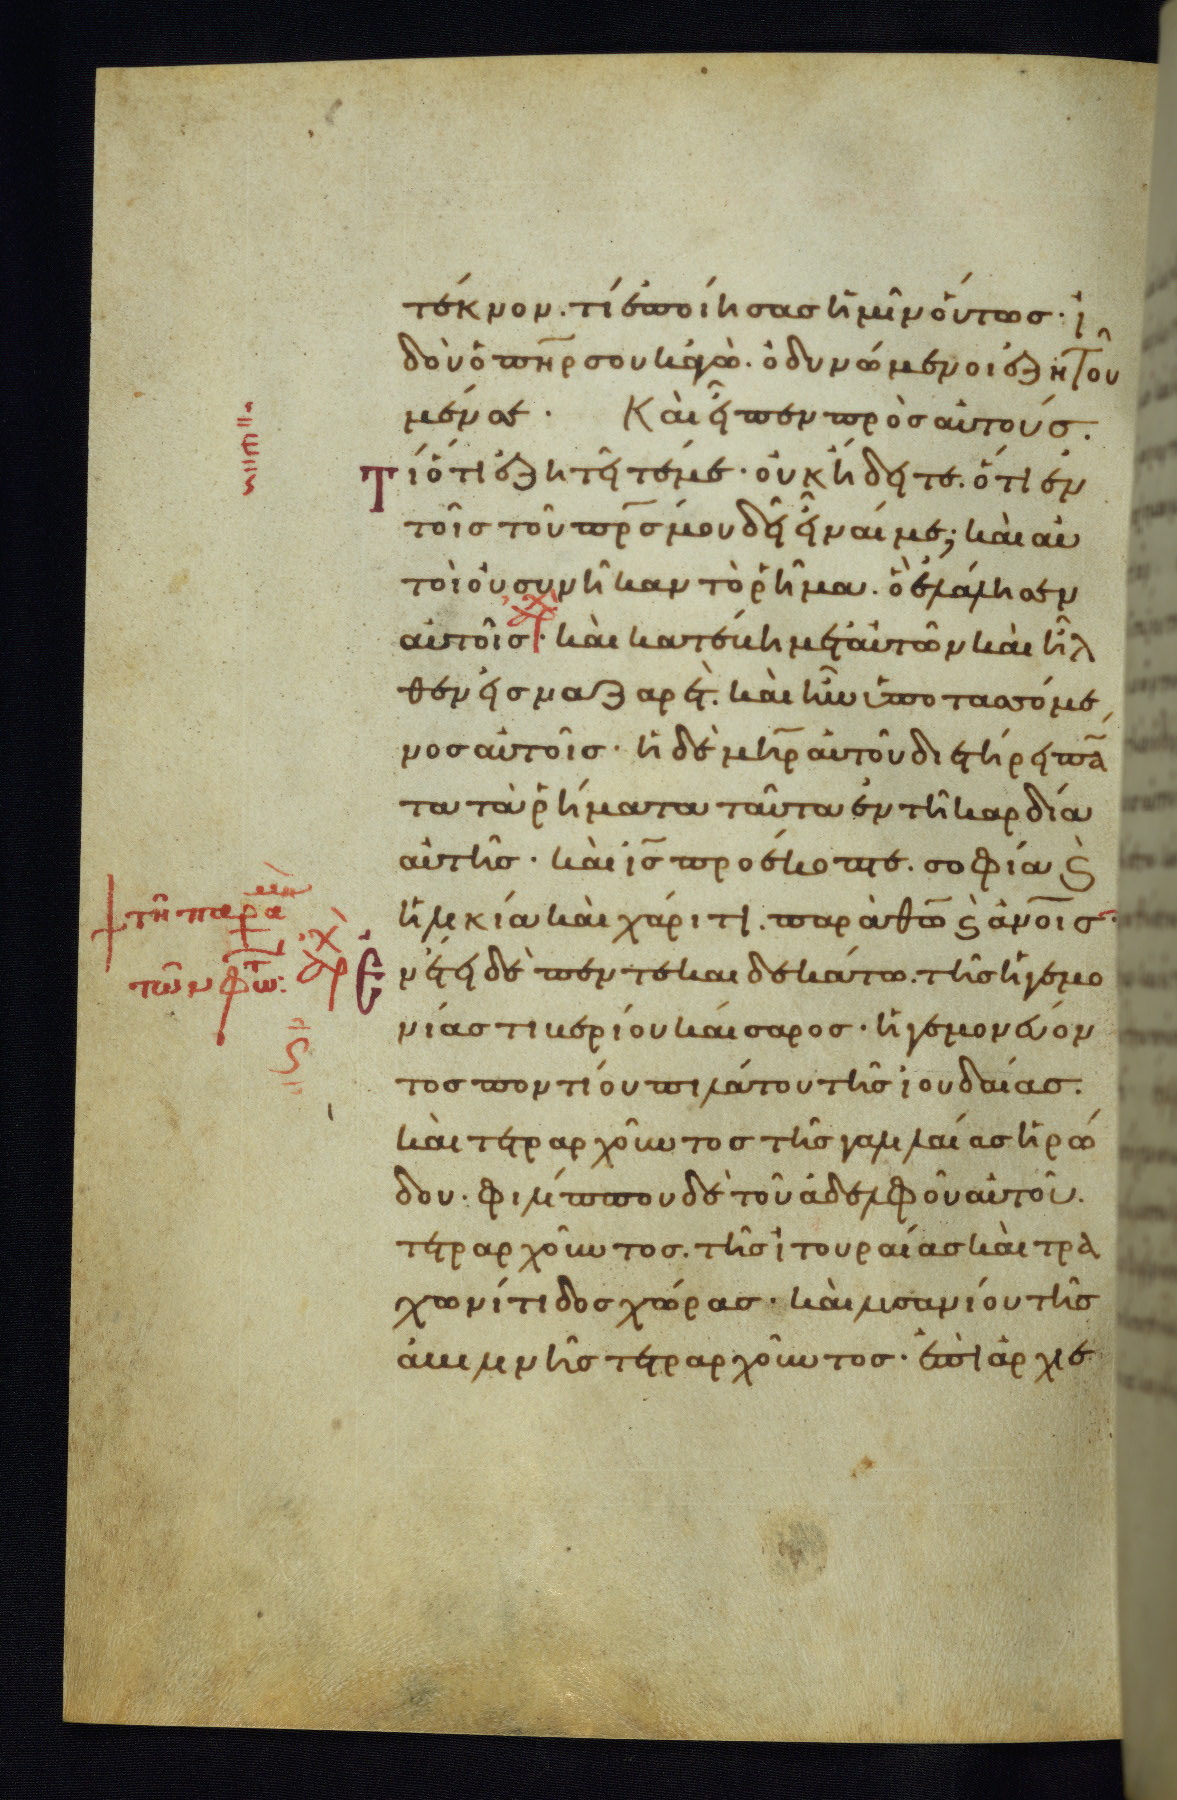 τέκνον. τί ἐποίησας ἡμῖν οὕτως· ἰ
δοὺ ὁ πη̅ρ σου κἀγὼ. ὀδυνώμενοι ἐζητοῦ
μέν σε· Καὶ εἶπεν πρὸς αὐτούς.
Τί ὅτι ἐζητεῖτέ με· οὐκ ἤδειτε. ὅτι ἐν
τοῖς τοῦ πρ̅ς μου δεῖ εἶναί με; καὶ αὐ
τοὶ οὐ συνῆκαν τὸ ῥῆμα. ὃ ἐλάλησεν
αὐτοῖς· καὶ κατέβη μετ' αὐτῶν καὶ ἦλ
θεν εἰς ναζαρέτ. καὶ ἦν ὑποτασσόμε
νος αὐτοῖς· ἡ δὲ μη̅ρ αὐτοῦ διετήρει πά̅
τα τὰ ῥήματα ταῦτα ἐν τῆ καρδία
αὐτῆς· καὶ ι̅ς προέκοπτε. σοφία ϛ̀
ἡλικία καὶ χάριτι. παρὰ θω̅ ϛ̀ ἀνο̅ις·
Ἐν ἔτει δὲ πεντεκαιδεκάτω. τῆς ἡγεμο
νίας τιβερίου καίσαρος· ἡγεμονεύον
τος ποντίου πιλάτου τῆς ἰουδαίας.
καὶ τετραρχοῦντος τῆς γαλιλαίας ἡρώ
δου· φιλίππου δὲ τοῦ ἀδελφοῦ αὐτοῦ.
τετραρχοῦντος. τῆς ἰτουραίας καὶ τρα
χωνίτιδος χώρας· καὶ λυσανίου τῆς
ἀβιληνῆς τετραρχοῦντος· ἐπὶ ἀρχιε
τῆ παρα
τῶν φώτ: